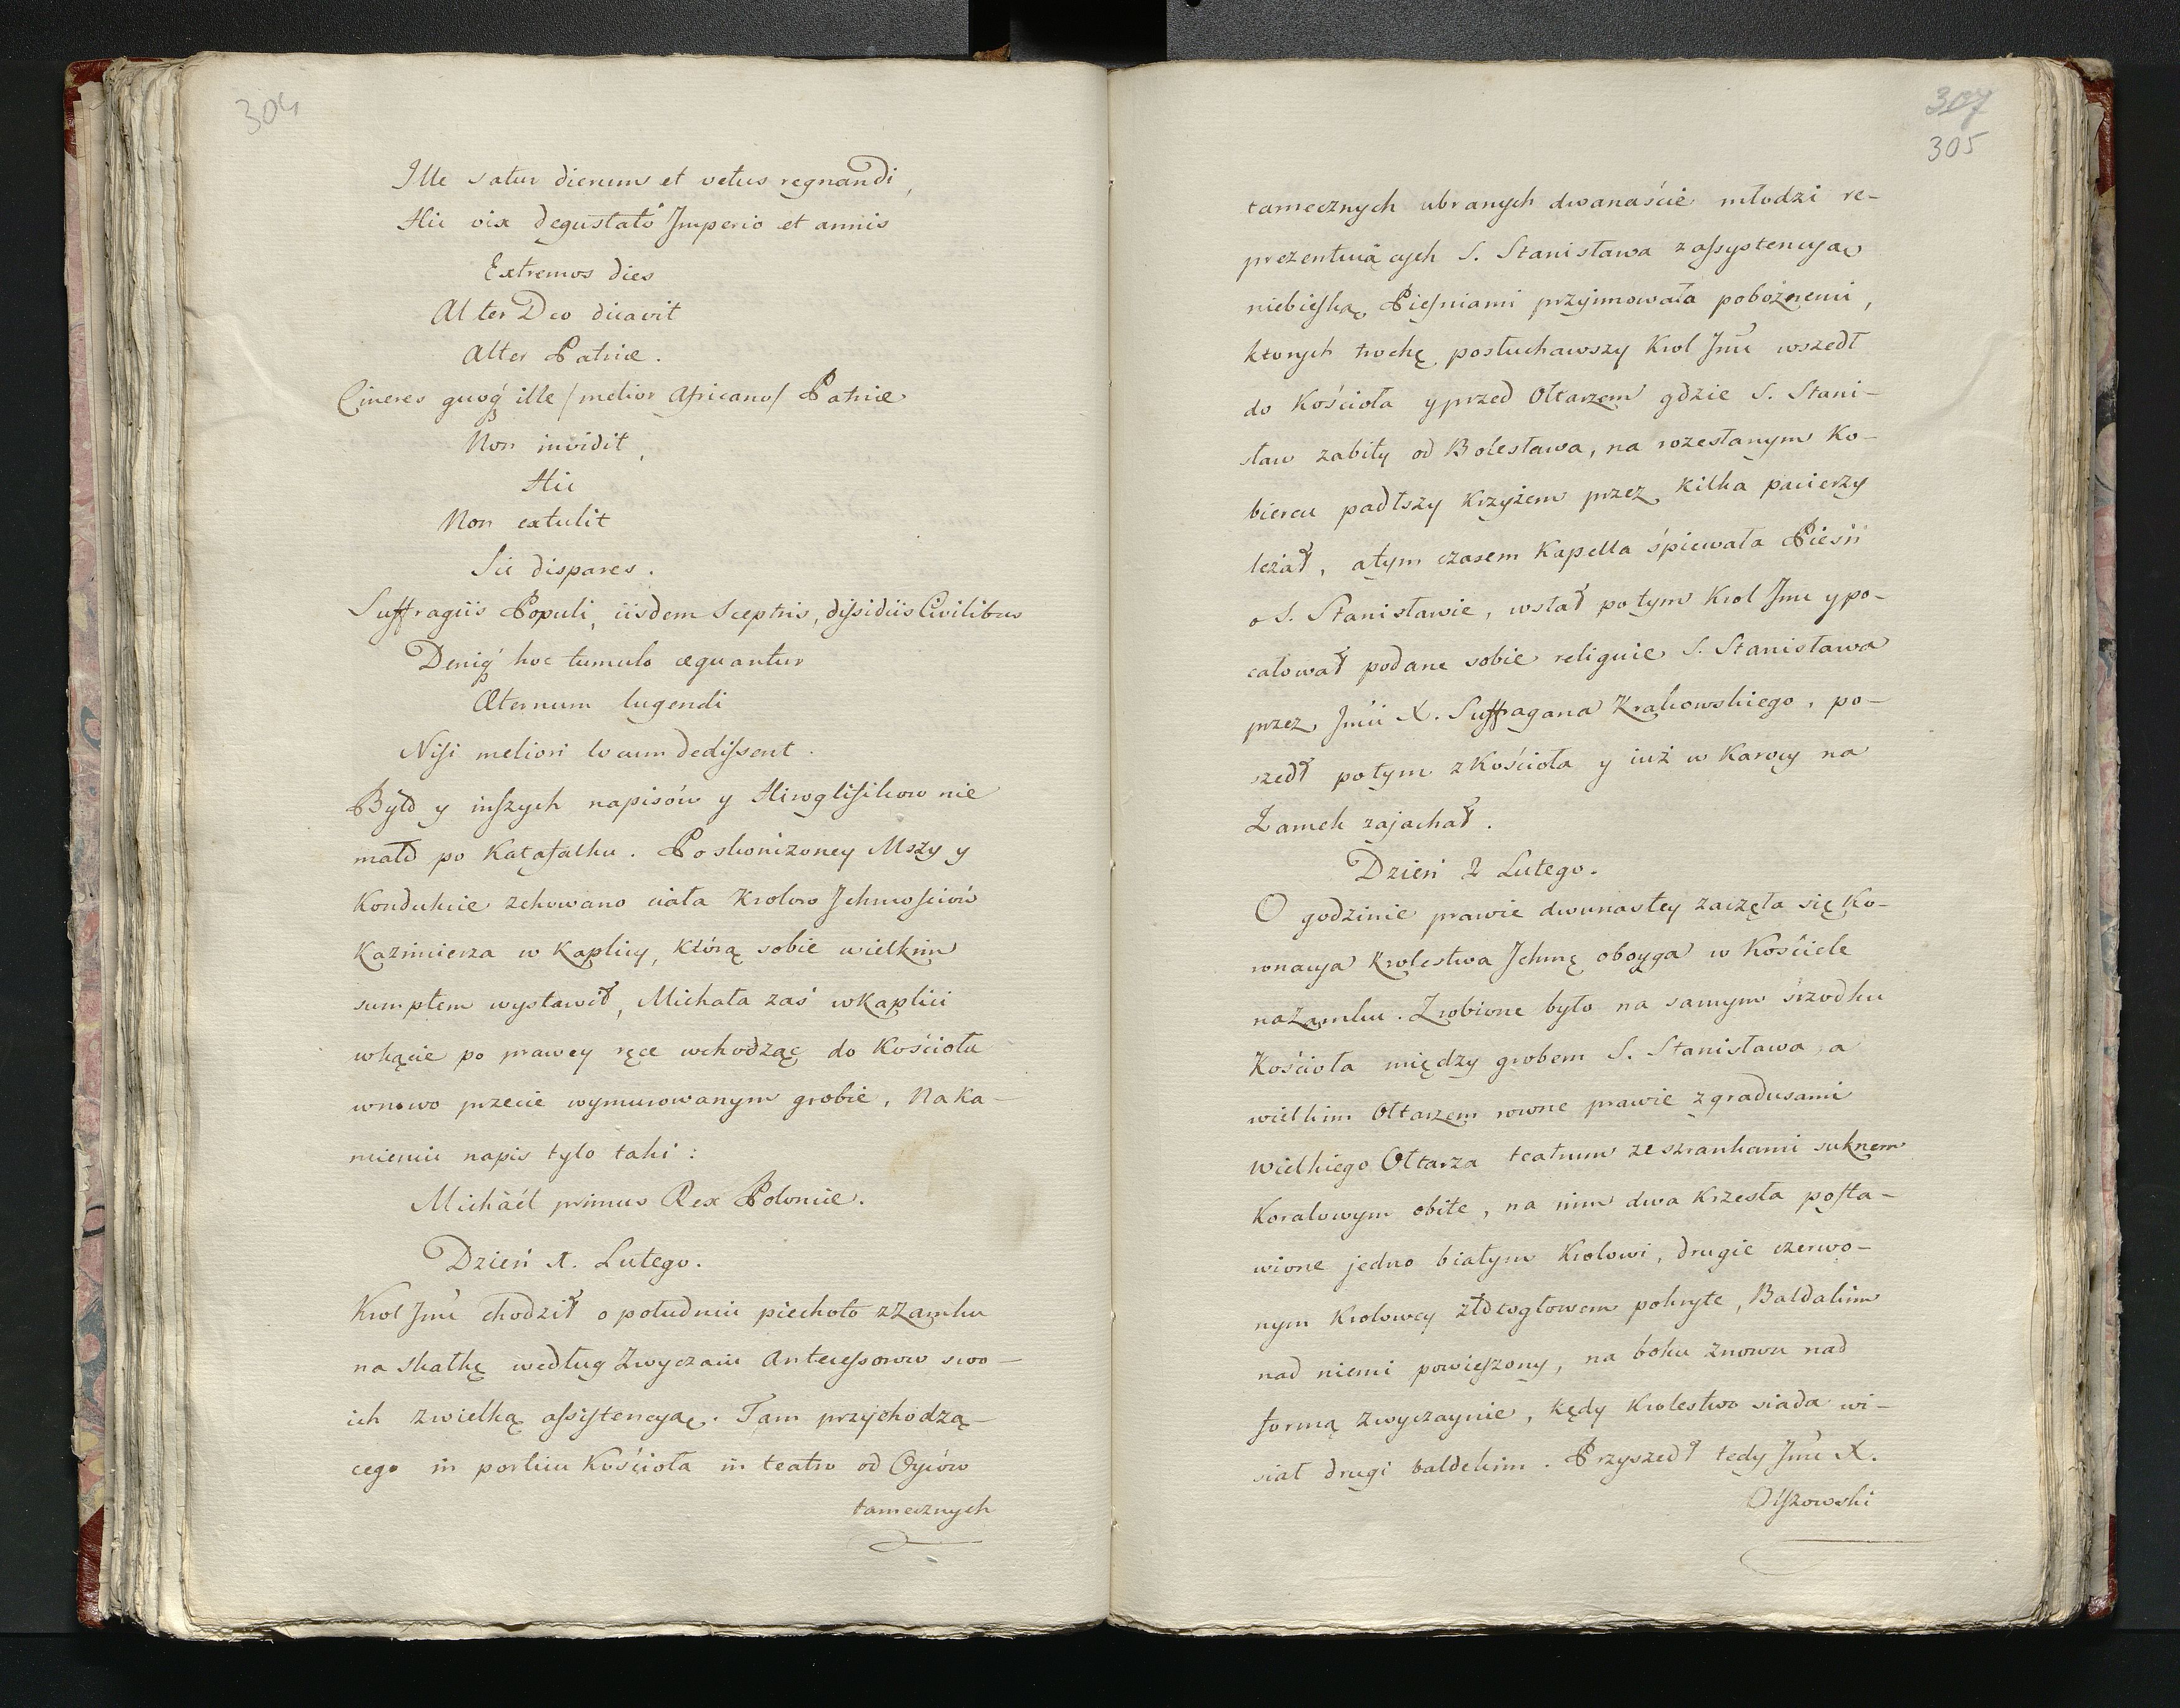 304
Ille satur dierum et vetus regnandi,
Hic vix degustato Imperio et annis
Extremos dies
Alter Deo dicavit
Alter Patriæ.
Cineres quoq́ ille /melior Africano/ Patriæ
Non invidit,
Hic
Non extulit
Sic dispares.
Suffragiis Populi, iisdem Sceptris, dissidiis Civilibus
Deniq́ hoc tumulo æquantur
Æternum lugendi
Nisi meliori locum dedissent.
Było y inszych napisów y Hiroglifikow nie
mało po Katafalku. Po skonizoney Mszy y
Kondukcie zchowano ciała Krolow Ichmościow
Kazimierza w Kaplicy, którą sobie wielkim
sumptem wystawił, Michała zaś w Kaplici
w kącie po prawey ręce wchodząc do Kościoła
wnowo przecie wymurowanym grobie, Na Ka-
mieniu napis tylo taki:
Michäel primus Rex Poloniæ.
Dzień 1. Lutego.
Krol Jmć chodził o południu piechoto z Zamku
na Skałkę według Zwyczaiu Antecessorow swo-
ich z wielką assistencyą. Tam przychodzą-
cego in porticu Kościoła in teatro od Oyców
tamecznych
307
305
tamecznych ubranych dwanaście młodzi re-
prezentuiących S. Stanisława z assystencyą
niebieską Pieśniami przyimowała pobożnemi,
ktorych trochę posłuchawszy Krol Jmć wszedł
do Kościoła y przed Ołtarzem gdzie S. Stani-
sław zabity od Bolesława, na rozesłanym Ko-
biercu padłszy Krzyżem przez kilka pacierzy
leżał, a tym czasem Kapella śpiewała Pieśń
o S. Stanisławie, wstał potym Krol Jmć y po-
całował podane sobie reliquie S. Stanisława
przez Jmći X. Suffragana Krakowskiego, po-
szedł potym z Kościoła y iuż w Karocy na
Zamek zajachał.
Dzień 2 Lutego.
O godzinie prawie dwunastey zaczęła się Ko-
ronacya Krolestwa Ichmć oboyga w Kościele
na Zamku. Zrobione było na samym śrzodku
Kościoła między grobem S. Stanisława, a
wielkim Ołtarzem rowne prawie z gradusami
Wielkiego Ołtarza teatrum ze szrankami suknem
Koralowym obite, na nim dwa Krzesła posta-
wione jedno białym Krolowi, drugie czerwo-
nym Krolowey złotogłowem pokryte, Baldakim
nad niemi powieszony, na boku znowu nad
formą zwyczaynie, kędy Krolestwo siada wi-
siał drugi baldekim. Przyszedł tedy Jmć X.
Olszowski